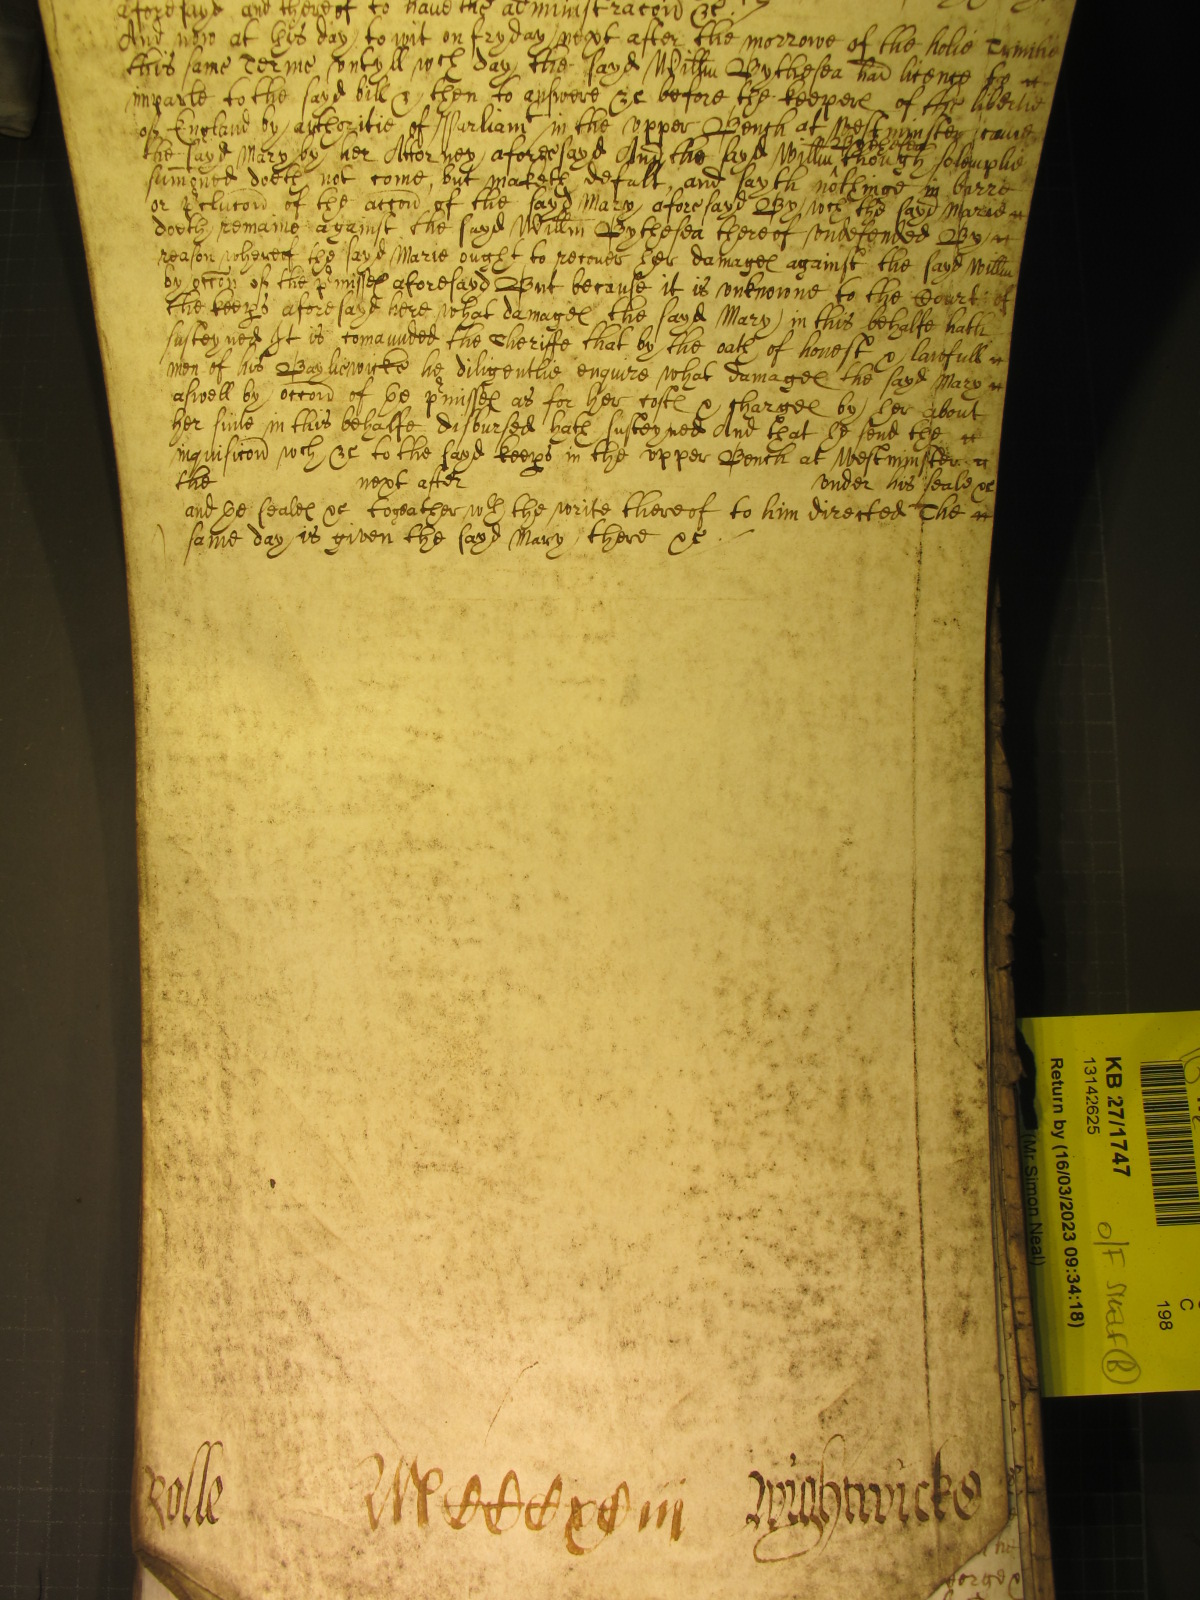 aforesayd and thereof to have the administracon &c
And now at this day to wit on fryday next after the morrowe of the holie Trinitie
this same Terme untyll wch day the sayd Willm Bythesea had licence to
imparle to the sayd bill & then to answere &c before the keepers of the libertie
of England by authoritie of Parliamt in the upper Bench at Westminster came
Bythesea
the sayd Mary by her Attorney aforesayd And the sayd Willm though solempnlie
sumoned doeth not come, but maketh defalt, and sayth nothinge in barre
or p'clucon of the accon of the sayd Mary aforesayd By wch the sayd Marie
doeth remaine against the sayd Willm Bythesea thereof undefended By
reason whereof the sayd Marie ought to recover her damages against the sayd Willm
by occon of the p'misses aforesayd But because it is unknowne to the Court of
the keep's aforesayd here what damages the sayd Mary in this behalfe hath
susteyned It is comaunded the Sheriffe that by the oath of honest & lawfull
men of his Bayliewicke he diligentlie enquire what damages the sayd Mary
aswell by occon of the p'misses as for her costs & charges by her about
her suite in this behalfe disbursed hath susteyned And that he send the
inquisicon wch &c to the sayd keep's in the upper Bench at Westminster
the next after under his seale &c
and the seales &c togeather wth the write thereof to him directed The
same day is given the sayd Mary there &c
Rolle MCCCCxCiii Wightwicke
KB 27/1747
13142625
Return by (16/03/2023 09:34:18)
(Mr Simon Neal)
C
198
o/F